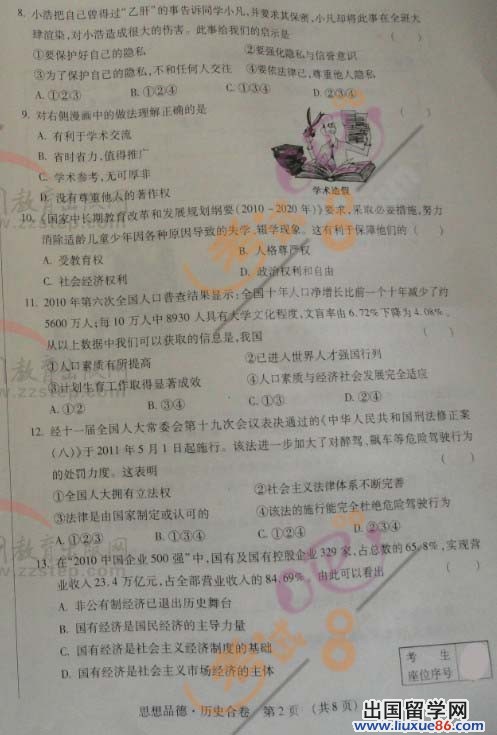 8. 小浩把自己曾得过“乙肝”的事告诉同学小凡,并要求其保密,小凡却将此事在全班大
肆渲染,对小浩造成很大的伤害。此事给我们的启示是 ( )
①要保护好自己的隐私 ②要强化隐私与信誉意识
③为了保护自己的隐私,不和任何人交往 ④要依法律己,尊重他人隐私
A. ①②③ B. ①②④ C. ①③④ D. ②③④
9. 对右侧漫画中的做法理解正确的是 ( )
A. 有利于学术交流
B. 省时省力,值得推广
C. 学术参考,无可厚非
D. 没有尊重他人的著作权
学术造假
10. 《国家中长期教育改革和发展规划纲要(2010-2020年)》要求,采取必要措施,努力
消除适龄儿童少年因各种原因导致的失学、辍学现象。这有利于保障他们的 ( )
A. 受教育权 B. 人格尊严权
C. 社会经济权利 D. 政治权利和自由
11. 2010年第六次全国人口普查结果显示:全国十年人口净增长比前一个十年减少了约
5600万人;每10万人中8930人具有大学文化程度,文盲率由6.72%下降为4.08%。
从以上数据中我们可以获取的信息是,我国 ( )
①人口素质有所提高 ②已进入世界人才强国行列
③计划生育工作取得显著成效 ④人口素质与经济社会发展完全适应
A. ①② B. ①③ C. ②④ D. ③④
12. 经十一届全国人大常委会第十九次会议表决通过的《中华人民共和国刑法修正案
(八)》于2011年5月1日起施行。该法进一步加大了对醉驾、飙车等危险驾驶行为
的处罚力度。这表明 ( )
①全国人大拥有立法权 ②社会主义法律体系不断完善
③法律是由国家制定或认可的 ④该法的施行能完全杜绝危险驾驶行为
A. ①②③ B. ①③④ C. ①②④ D. ②③④
13. 在“2010中国企业500强”中,国有及国有控股企业329家,占总数的65.8%,实现营
业收入23.4万亿元,占全部营业收入的84.69%。由此可以看出 ( )
A. 非公有制经济已退出历史舞台
B. 国有经济是国民经济的主导力量
C. 国有经济是社会主义经济制度的基础
D. 国有经济是社会主义市场经济的主体
考 生
座位序号
思想品德·历史合卷 第2页 (共8页)
出国留学网
www.liuxue86.com
教育出版网
www.zzstep.com